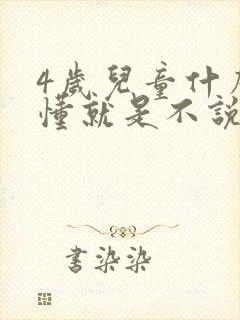 4歲兒童什
懂就是不說
書染染